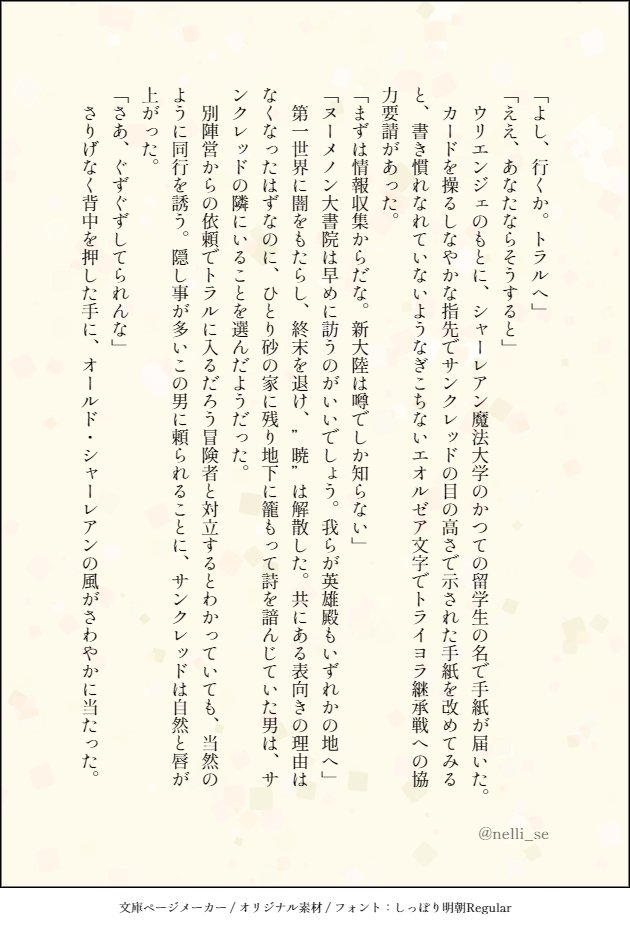 「よし、行くか。トラルへ」
「ええ、あなたならそうすると」
　ウリエンジェのもとに、シャーレアン魔法大学のかつての留学生の名で手紙が届いた。
　カードを操るしなやかな指先でサンクレッドの目の高さで示された手紙を改めてみる
と、書き慣れなれていないようなぎこちないエオルゼア文字でトライヨラ継承戦への協
力要請があった。
「まずは情報収集からだな。新大陸は噂でしか知らない」
「ヌーメノン大書院は早めに訪うのがいいでしょう。我らが英雄殿もいずれかの地へ」
　第一世界に闇をもたらし、終末を退け、”暁”は解散した。共にある表向きの理由は
なくなったはずなのに、ひとり砂の家に残り地下に籠もって詩を諳んじていた男は、サ
ンクレッドの隣にいることを選んだようだった。
　別陣営からの依頼でトラルに入るだろう冒険者と対立するとわかっていても、当然の
ように同行を誘う。隠し事が多いこの男に頼られることに、サンクレッドは自然と唇が
上がった。
「さあ、ぐずぐずしてられんな」
　さりげなく背中を押した手に、オールド・シャーレアンの風がさわやかに当たった。
@nelli_se
文庫ページメーカー / オリジナル素材 / フォント：しっぽり明朝Regular